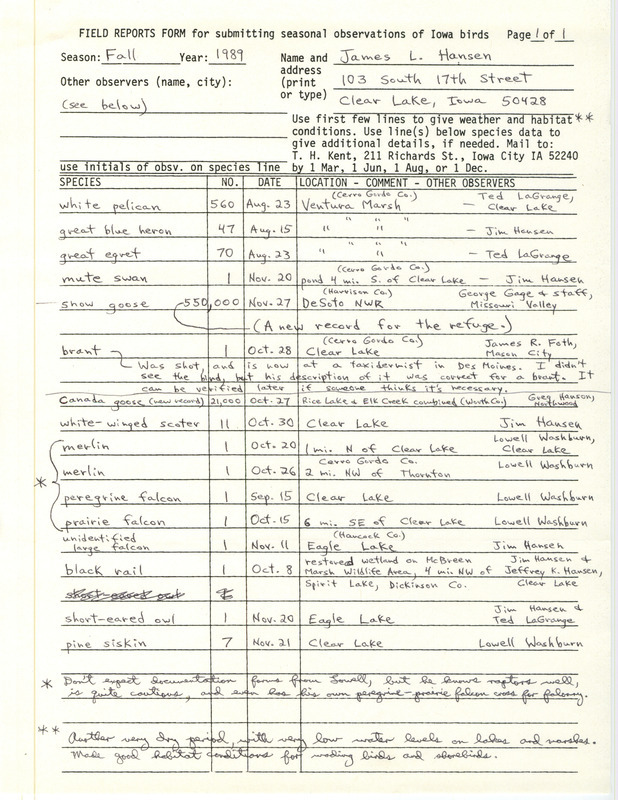 FIELD REPORTS FORM for submitting seasonal observations of Iowa birds Page 1 of 1
Season: Fall Year: 1989 Name and address (print or type) James L. Hansen
103 South 17th Street
Clear Lake, Iowa 50428
Other observers (name, city):
(see below)
Use first few lines to give weather and habitat **
conditions. Use line(s) below species data to
give additional details, if needed. Mail to:
T. H. Kent, 211 Richards St., Iowa City IA 52240
use initials of obsv. on species line by 1 Mar, 1 Jun, 1 Aug, or 1 Dec.
SPECIES NO. DATE LOCATION - COMMENT - OTHER OBSERVERS
white pelican 560 Aug. 23 Ventura Marsh (Cerro Gordo Co.) — Ted LaGrange, Clear Lake
great blue heron 47 Aug. 15 " " " " " — Jim Hansen
great egret 70 Aug. 23 " " " " " — Ted LaGrange
mute swan 1 Nov. 20 pond 4 mi. S. of Clear Lake (Cerro Gordo Co.) — Jim Hansen
snow goose 550,000 Nov. 27 DeSoto NWR (Harrison Co.) George Gage & staff, Missouri Valley
(A new record for the refuge.)
brant 1 Oct. 28 Clear Lake (Cerro Gordo Co.) James R. Foth, Mason City
Was shot, and is now at a taxidermist in Des Moines. I didn't
see the bird, but his description of it was correct for a brant. It
can be verified later if someone thinks it's necessary.
Canada goose (new record) 21,000 Oct. 27 Rice Lake & Elk Creek combined (Worth Co.) Greg Hanson, Northwood
white-winged scoter 11 Oct. 30 Clear Lake Jim Hansen
merlin 1 Oct. 20 1 mi. N of Clear Lake Lowell Washburn, Clear Lake
* merlin 1 Oct. 26 Cerro Gordo Co. 2 mi. NW of Thornton Lowell Washburn
peregrine falcon 1 Sep. 15 Clear Lake Lowell Washburn
prairie falcon 1 Oct. 15 6 mi. SE of Clear Lake Lowell Washburn
unidentified large falcon 1 Nov. 11 Eagle Lake (Hancock Co.) Jim Hansen
black rail 1 Oct. 8 restored wetland on McBreen Jim Hansen &
Marsh Wildlife Area, 4 mi. NW of Jeffrey K. Hansen,
Spirit Lake, Dickinson Co. Clear Lake
short-eared owl
short-eared owl 1 Nov. 20 Eagle Lake Jim Hansen & Ted LaGrange
pine siskin 7 Nov. 21 Clear Lake Lowell Washburn
* Don't expect documentation forms from Lowell, but he knows raptors well,
is quite cautious, and even has his own peregrine-prairie falcon cross for falconry.
** Another very dry period, with very low water levels on lakes and marshes.
Made good habitat conditions for wading birds and shorebirds.